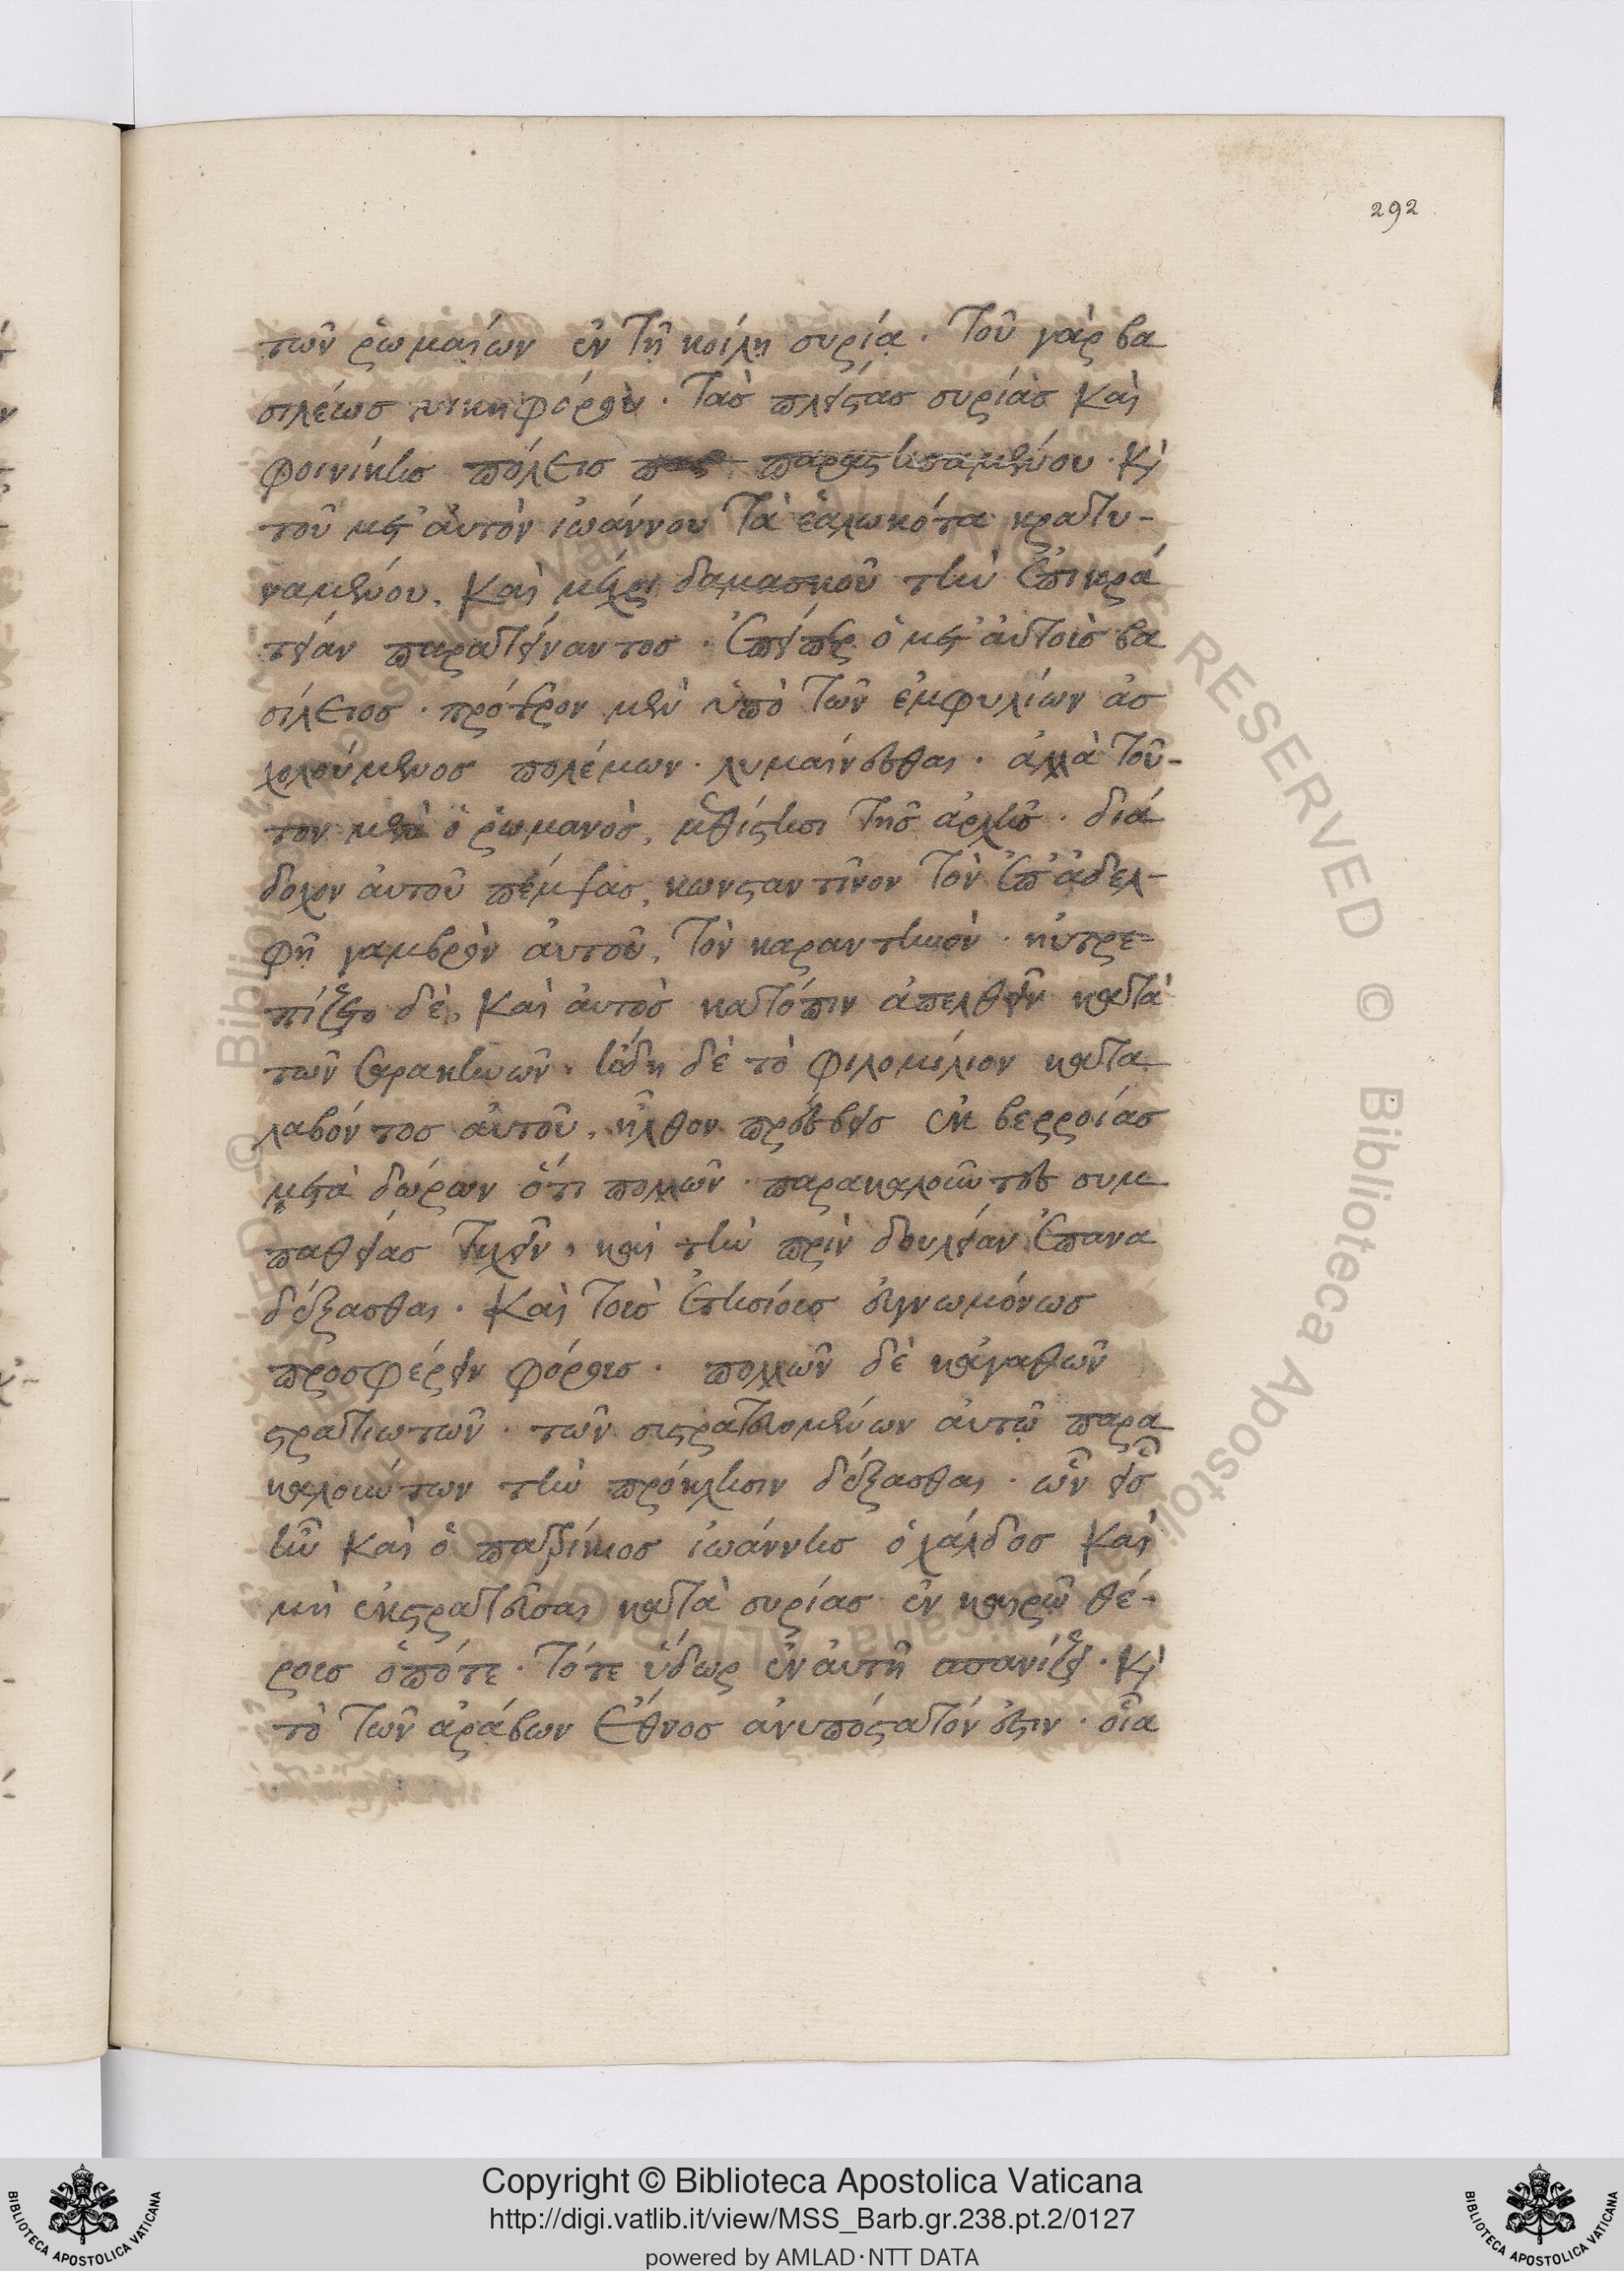 292
τῶν ῥωμαίων ἐν τῇ κοίλῃ συρίᾳ. τοῦ γὰρ βα
σιλέωσ νικηφόρου. τὰσ πλείστασ συρίασ καὶ
φοινίκησ πόλεισ παραστησαμένου. κὶ
τοῦ μετ' ἀυτὸν ἰωάννου τὰ ἑαλωκότα κρατυ-
ναμένου. καὶ μέχρι δαμασκοῦ τὴν ἐπικρά
τειαν παρατείναντοσ. ἐπείπερ ὁ μετ' ἀυτοὺσ βα
σίλειοσ. πρότερον μὲν ὑπὸ τῶν ἐμφυλίων ἀσ
χολούμενοσ πολέμων. λυμαίνεσθαι. ἀλλὰ τοῦ-
τον μὲν ὁ ῥωμανὸσ, μεθίστησι τῆσ ἀρχῆσ. διά
δοχον ἀυτοῦ πέμψασ, κωνσταντῖνον τὸν ἐπ' ἀδελ-
φῇ γαμβρὸν ἀυτοῦ, τὸν καραντηνὸν. ηὐτρε-
πίζετο δὲ, καὶ ἀυτὸσ κατόπιν ἀπελθεῖν κατὰ
τῶν σαρακηνῶν. ἤδη δὲ τὸ φιλομίλιον κατα
λαβόντοσ ἀυτοῦ, ἦλθον πρέσβεισ ἐκ βερροίασ
μετὰ δώρων ὅτι πολλῶν. παρακαλοῦντεσ συμ
παθείασ τυχεῖν, καὶ τὴν πρὶν δουλείαν ἐπανα
δέξασθαι. καὶ τοὺσ ἐτησίουσ εὐγνωμόνωσ
προσφέρειν φόρουσ. πολλῶν δὲ κἀγαθῶν
στρατιωτῶν. τῶν συστρατευομένων ἀυτῷ παρα
καλούντων τὴν πρόκλησιν δέξασθαι. ὧν εἷσ
ἦν καὶ ὁ πατρίκιοσ ἰωάννησ ὁ χάλδοσ καὶ
μὴ ἐκστρατεῦσαι κατὰ συρίασ ἐν καιρῷ θέ-
ρουσ ὁπότε. τό τε ὕδωρ ἐν ἀυτῇ σπανίζει. κὶ
τὸ τῶν ἀράβων ἔθνοσ ἀνυπόστατόν ἐστιν. οἷα
Copyright © Biblioteca Apostolica Vaticana
http://digi.vatlib.it/view/MSS_Barb.gr.238.pt.2/0127
powered by AMLAD·NTT DATA
BIBLIOTECA APOSTOLICA VATICANA
BIBLIOTECA APOSTOLICA VATICANA